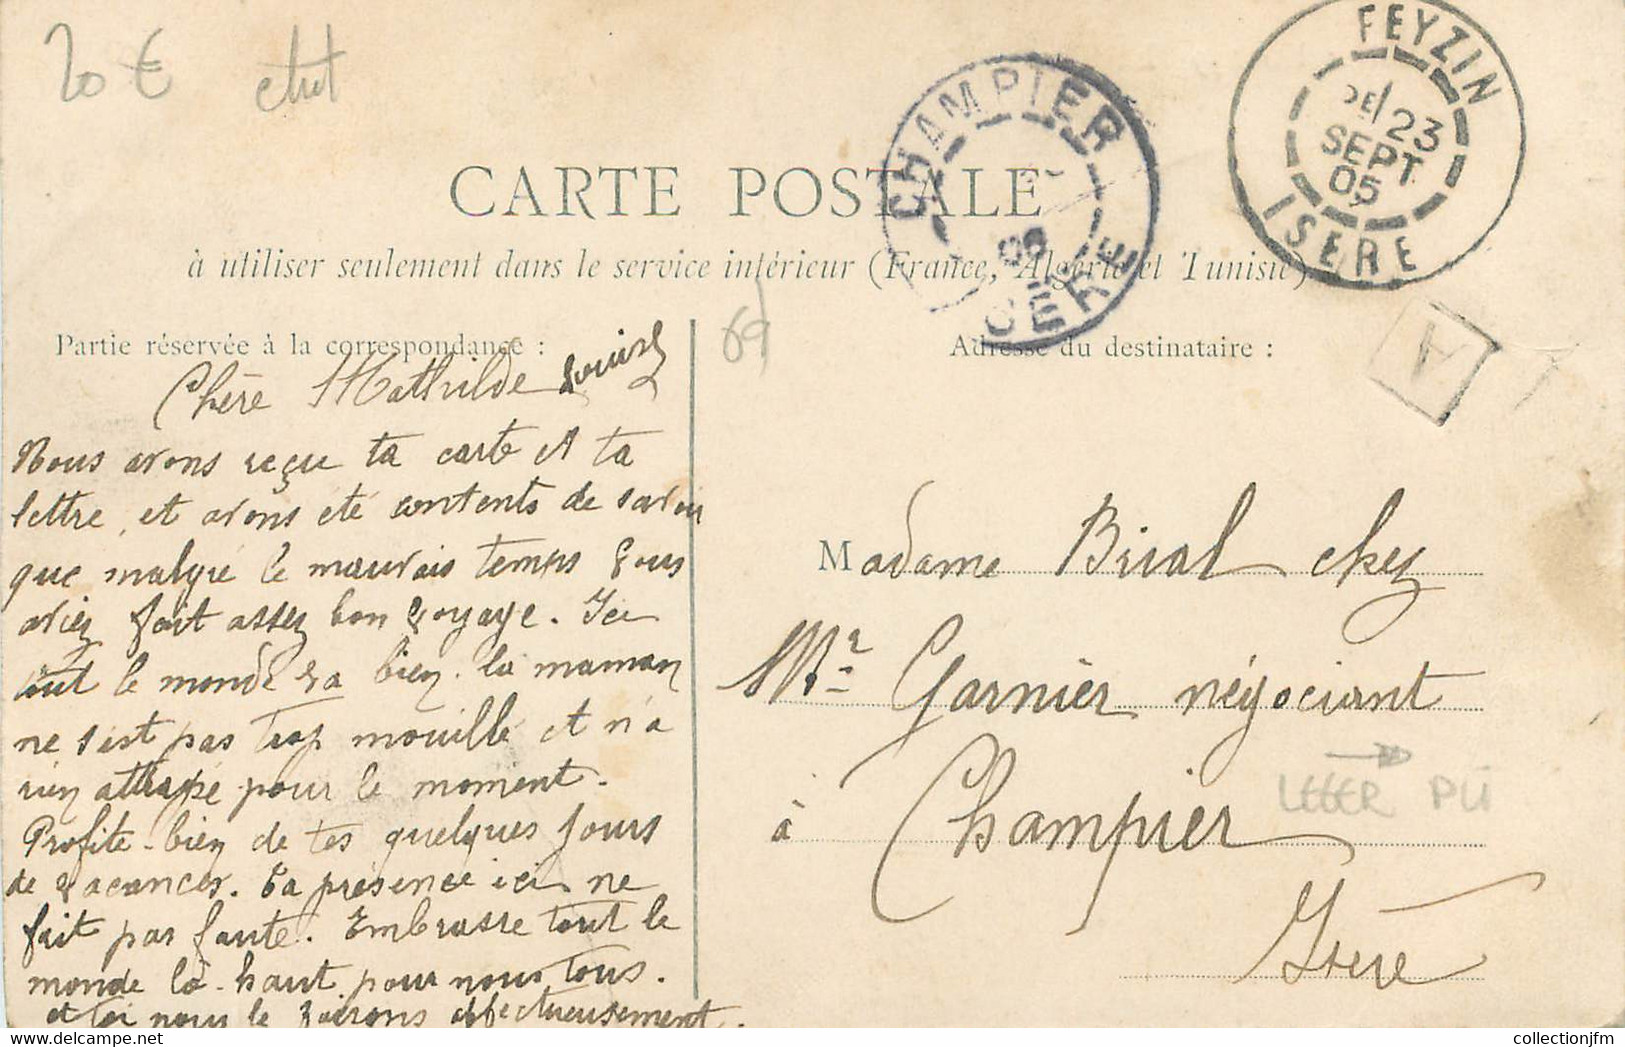 20 €
CHAMPIER
ISÈRE
FEYZIN
23
SEPT
05
ISÈRE
CARTE POSTALE
à utiliser seulement dans le service intérieur (France, Algérie et Tunisie)
69
Partie réservée à la correspondance :
Adresse du destinataire :
A
Louise
Chère Mathilde
Nous avons reçu ta carte et ta
lettre, et avons été contents de savoir
que malgré le mauvais temps vous
aviez fait assez bon voyage. Ici
tout le monde va bien. la maman
ne s'est pas trop mouillé et n'a
rien attrapé pour le moment.
Profite bien de tes quelques jours
de vacances. Ta présence ici ne
fait pas faute. Embrasse tout le
monde là-haut pour nous tous.
et toi nous le faisons affectueusement.
Madame Bival chez
Mr Garnier négociant
à Champier
Isère
collectionjfm